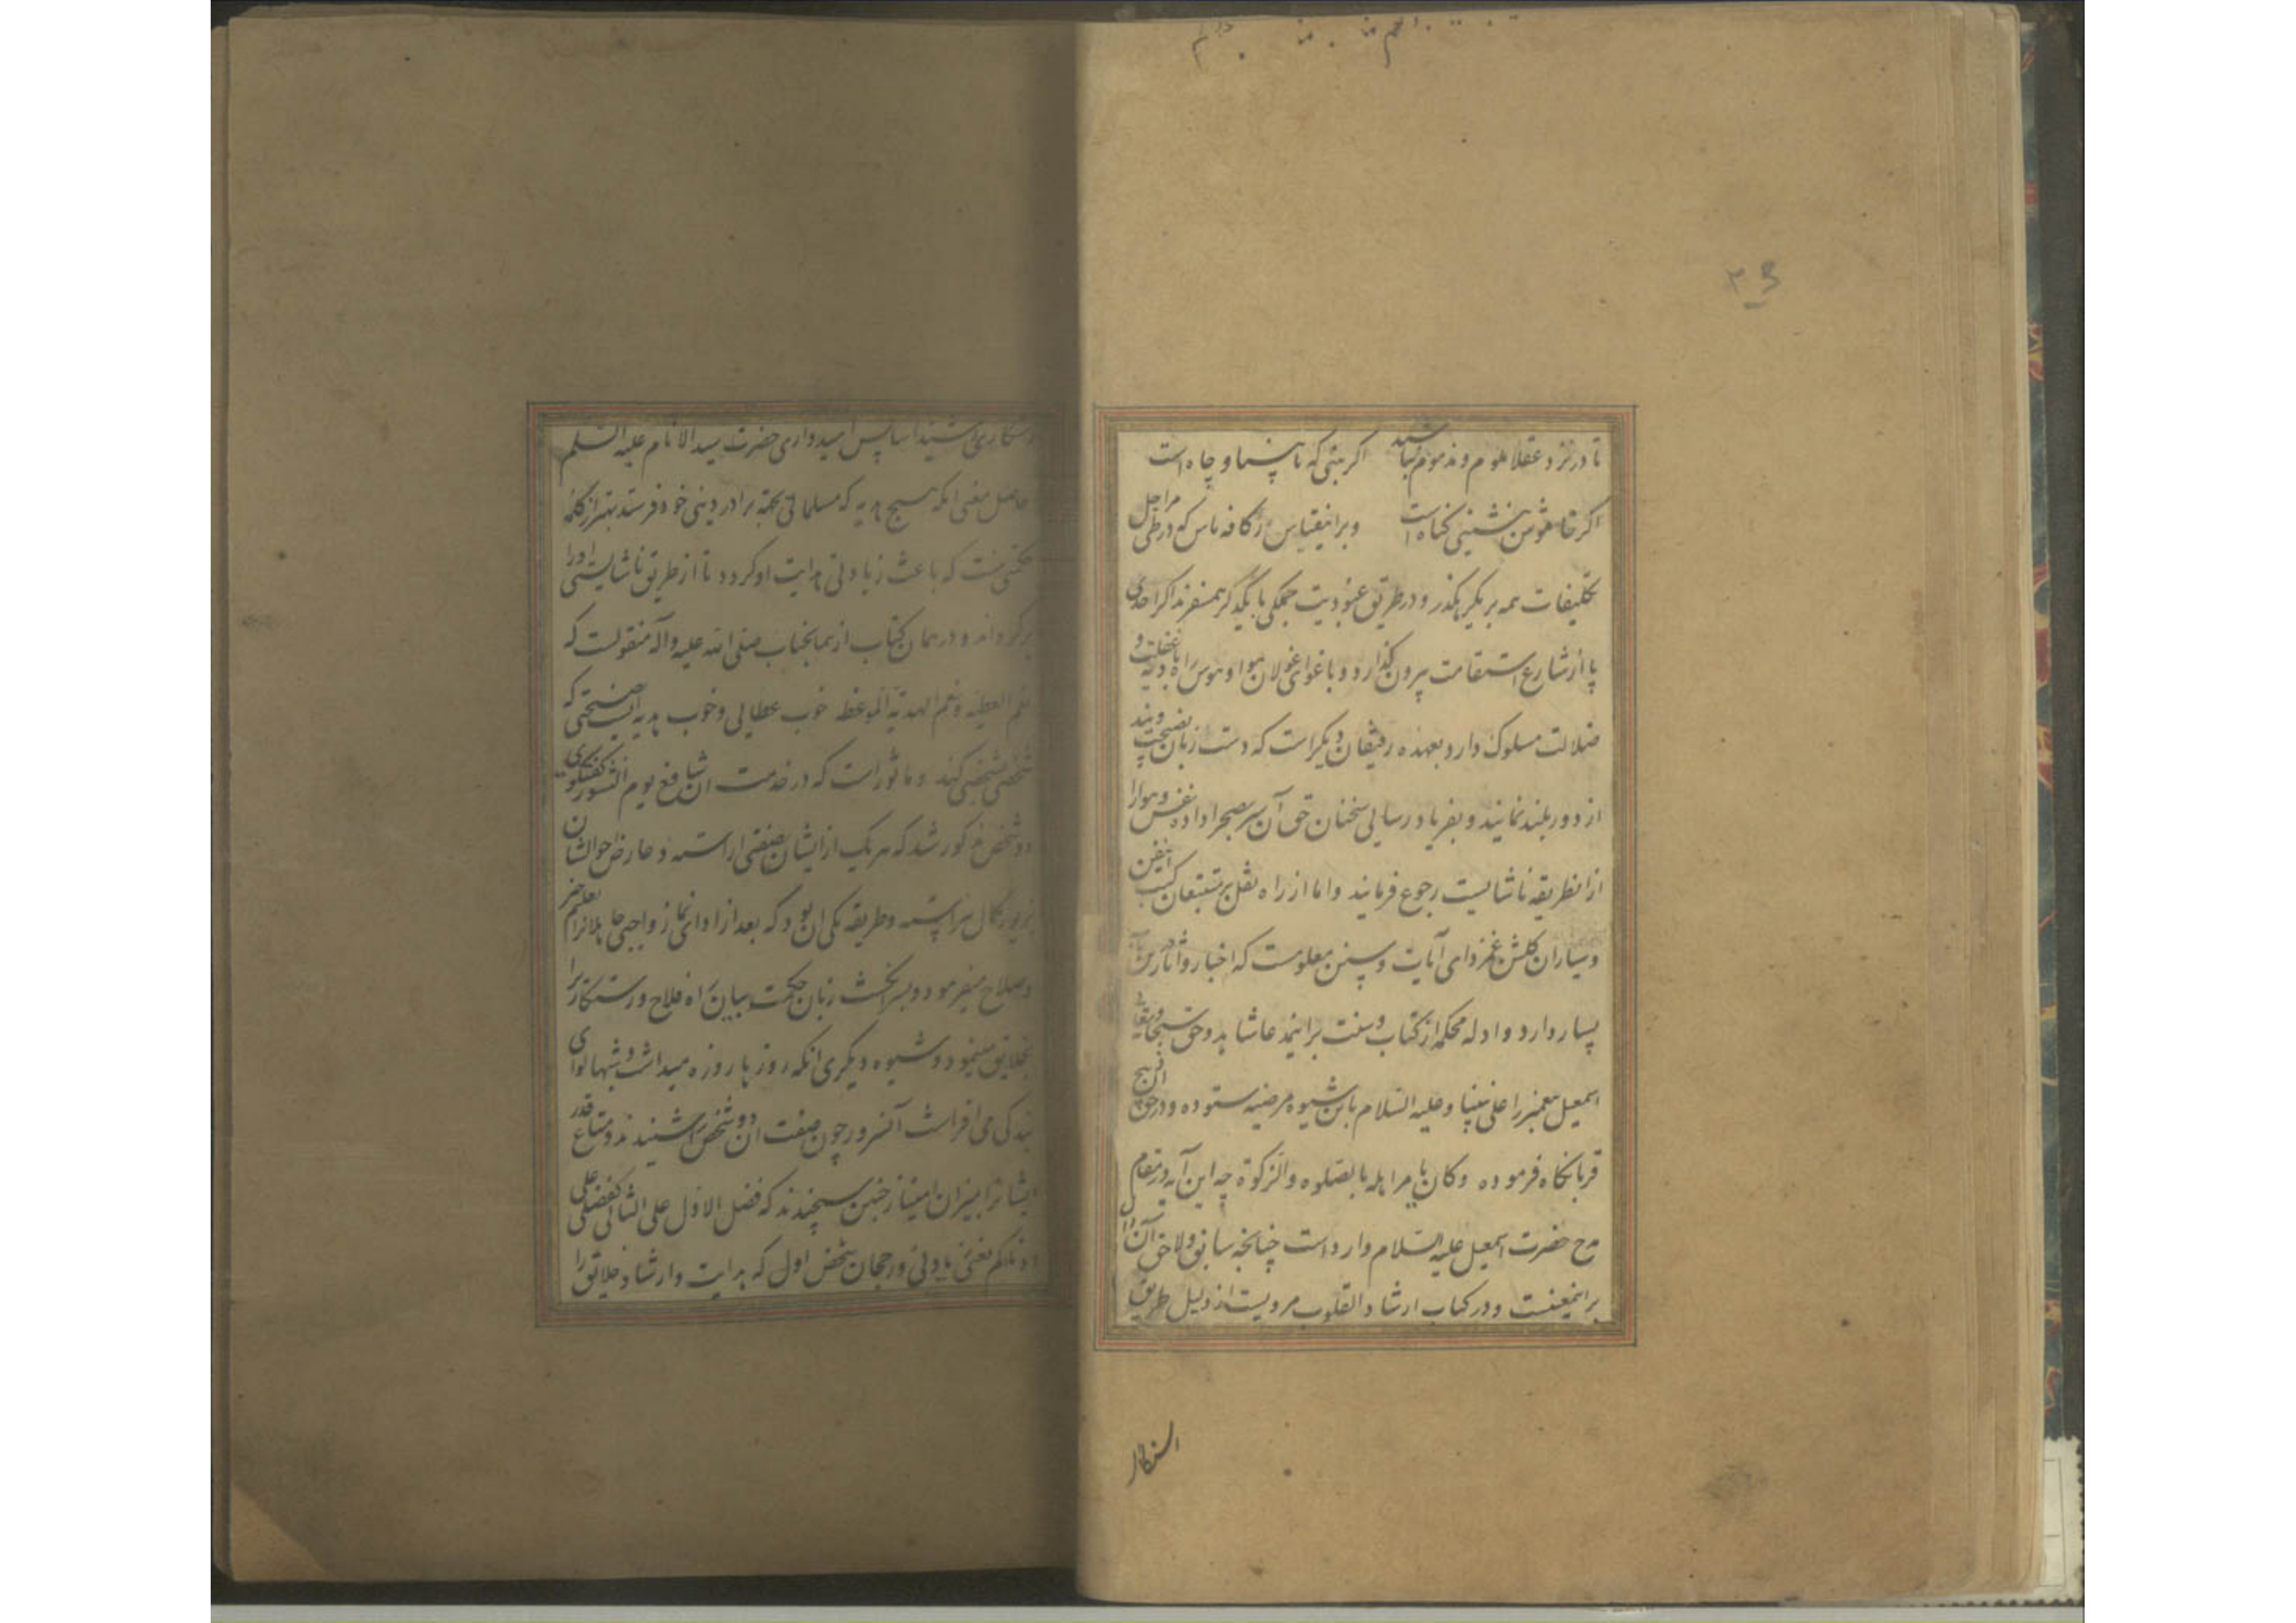 ۲۳
تا در نزد عقلا ملوم و مذموم نباشد اکر بینی که نابینا و چاه است
اکر خاموش بنشینی کناه است و براینقیاس کافه ناس که در طی مراحل
تکلیفات همه بر یکرهکذر و در طریق عبودیت جملکی با یکدکر همسفرند اکر احدی
پا از شارع استقامت بیرون کذارد و باغوای غولان هوا و هوس راه بادیه غفلت و
ضلالت مسلوک دارد بعهده رفیقان دیکر است که دست زبان بنصیحت و پند
از دور بلند نمایند و بفریاد رسایی سخنان حق آن سر بصحرا داده نفس و هوا را
از انطریقه ناشایست رجوع فرمایند و اما از راه نقل بر متتبعان کتب
و سیاران کلشن آیات و سنن معلومست که اخبار و آثار درین
بسیار دارد و ادله محکمه از کتاب و سنت بر اینمدعا شاهد و حق سبحانه و تعالی
اسمعیل پیغمبر را علی نبینا و علیه السلام باین شیوه مرضیه ستوده و در حق آن ذبیح
قربانکاه فرموده وکان یامر اهله بالصلوه والزکوة چه این آیه در مقام
مدح حضرت اسمعیل علیه السلام وارد است چنانچه سابق و لاحق آن دال
براینمعنیست و در کتاب ارشاد القلوب مرویست از دلیل طریق
رستکاری سید الانام علیه السلم
حاصل معنی انکه هیچ هدیه که مسلمانی بجهة برادر دینی خود فرستد بهتر از کلمه
حکمتی نیست که باعث زیادتی هدایت او کردد تا از طریق ناشایستی او را
برکرداند و در همان کتاب از همانجناب صلی الله علیه و آله منقولست که
نعم العطیه و نعم الهدیة الموعظه خوب عطایی و خوب هدیه ایست نصیحتی که
شخصی بشخصی کند و ماثور است که در خدمت ان شافع یوم النشور کفتکوی
دو شخص مذکور شد که هر یک از ایشان بصفتی اراسته و عارض حوالشان
بزیور کمال پیراسته و طریقه یکی ان بود که بعد از ادای نماز واجبی
و صلاح میفرمود و بسرانکشت زبان حکمت بیان راه فلاح و رستکاریرا
بخلایق مینمود و شیوه دیکری انکه روزها روزه میداشت و شبها لوای
بندکی می افراشت آنسرور چون صفت ان دو شخص را شنیدند و متاع قدر
ایشانرا بمیزان امتیاز چنین سنجیدند که فضل الاول علی الثانی کفضلی علی
ادناکم یعنی زیادتی و رجحان شخص اول که هدایت و ارشاد خلایق را